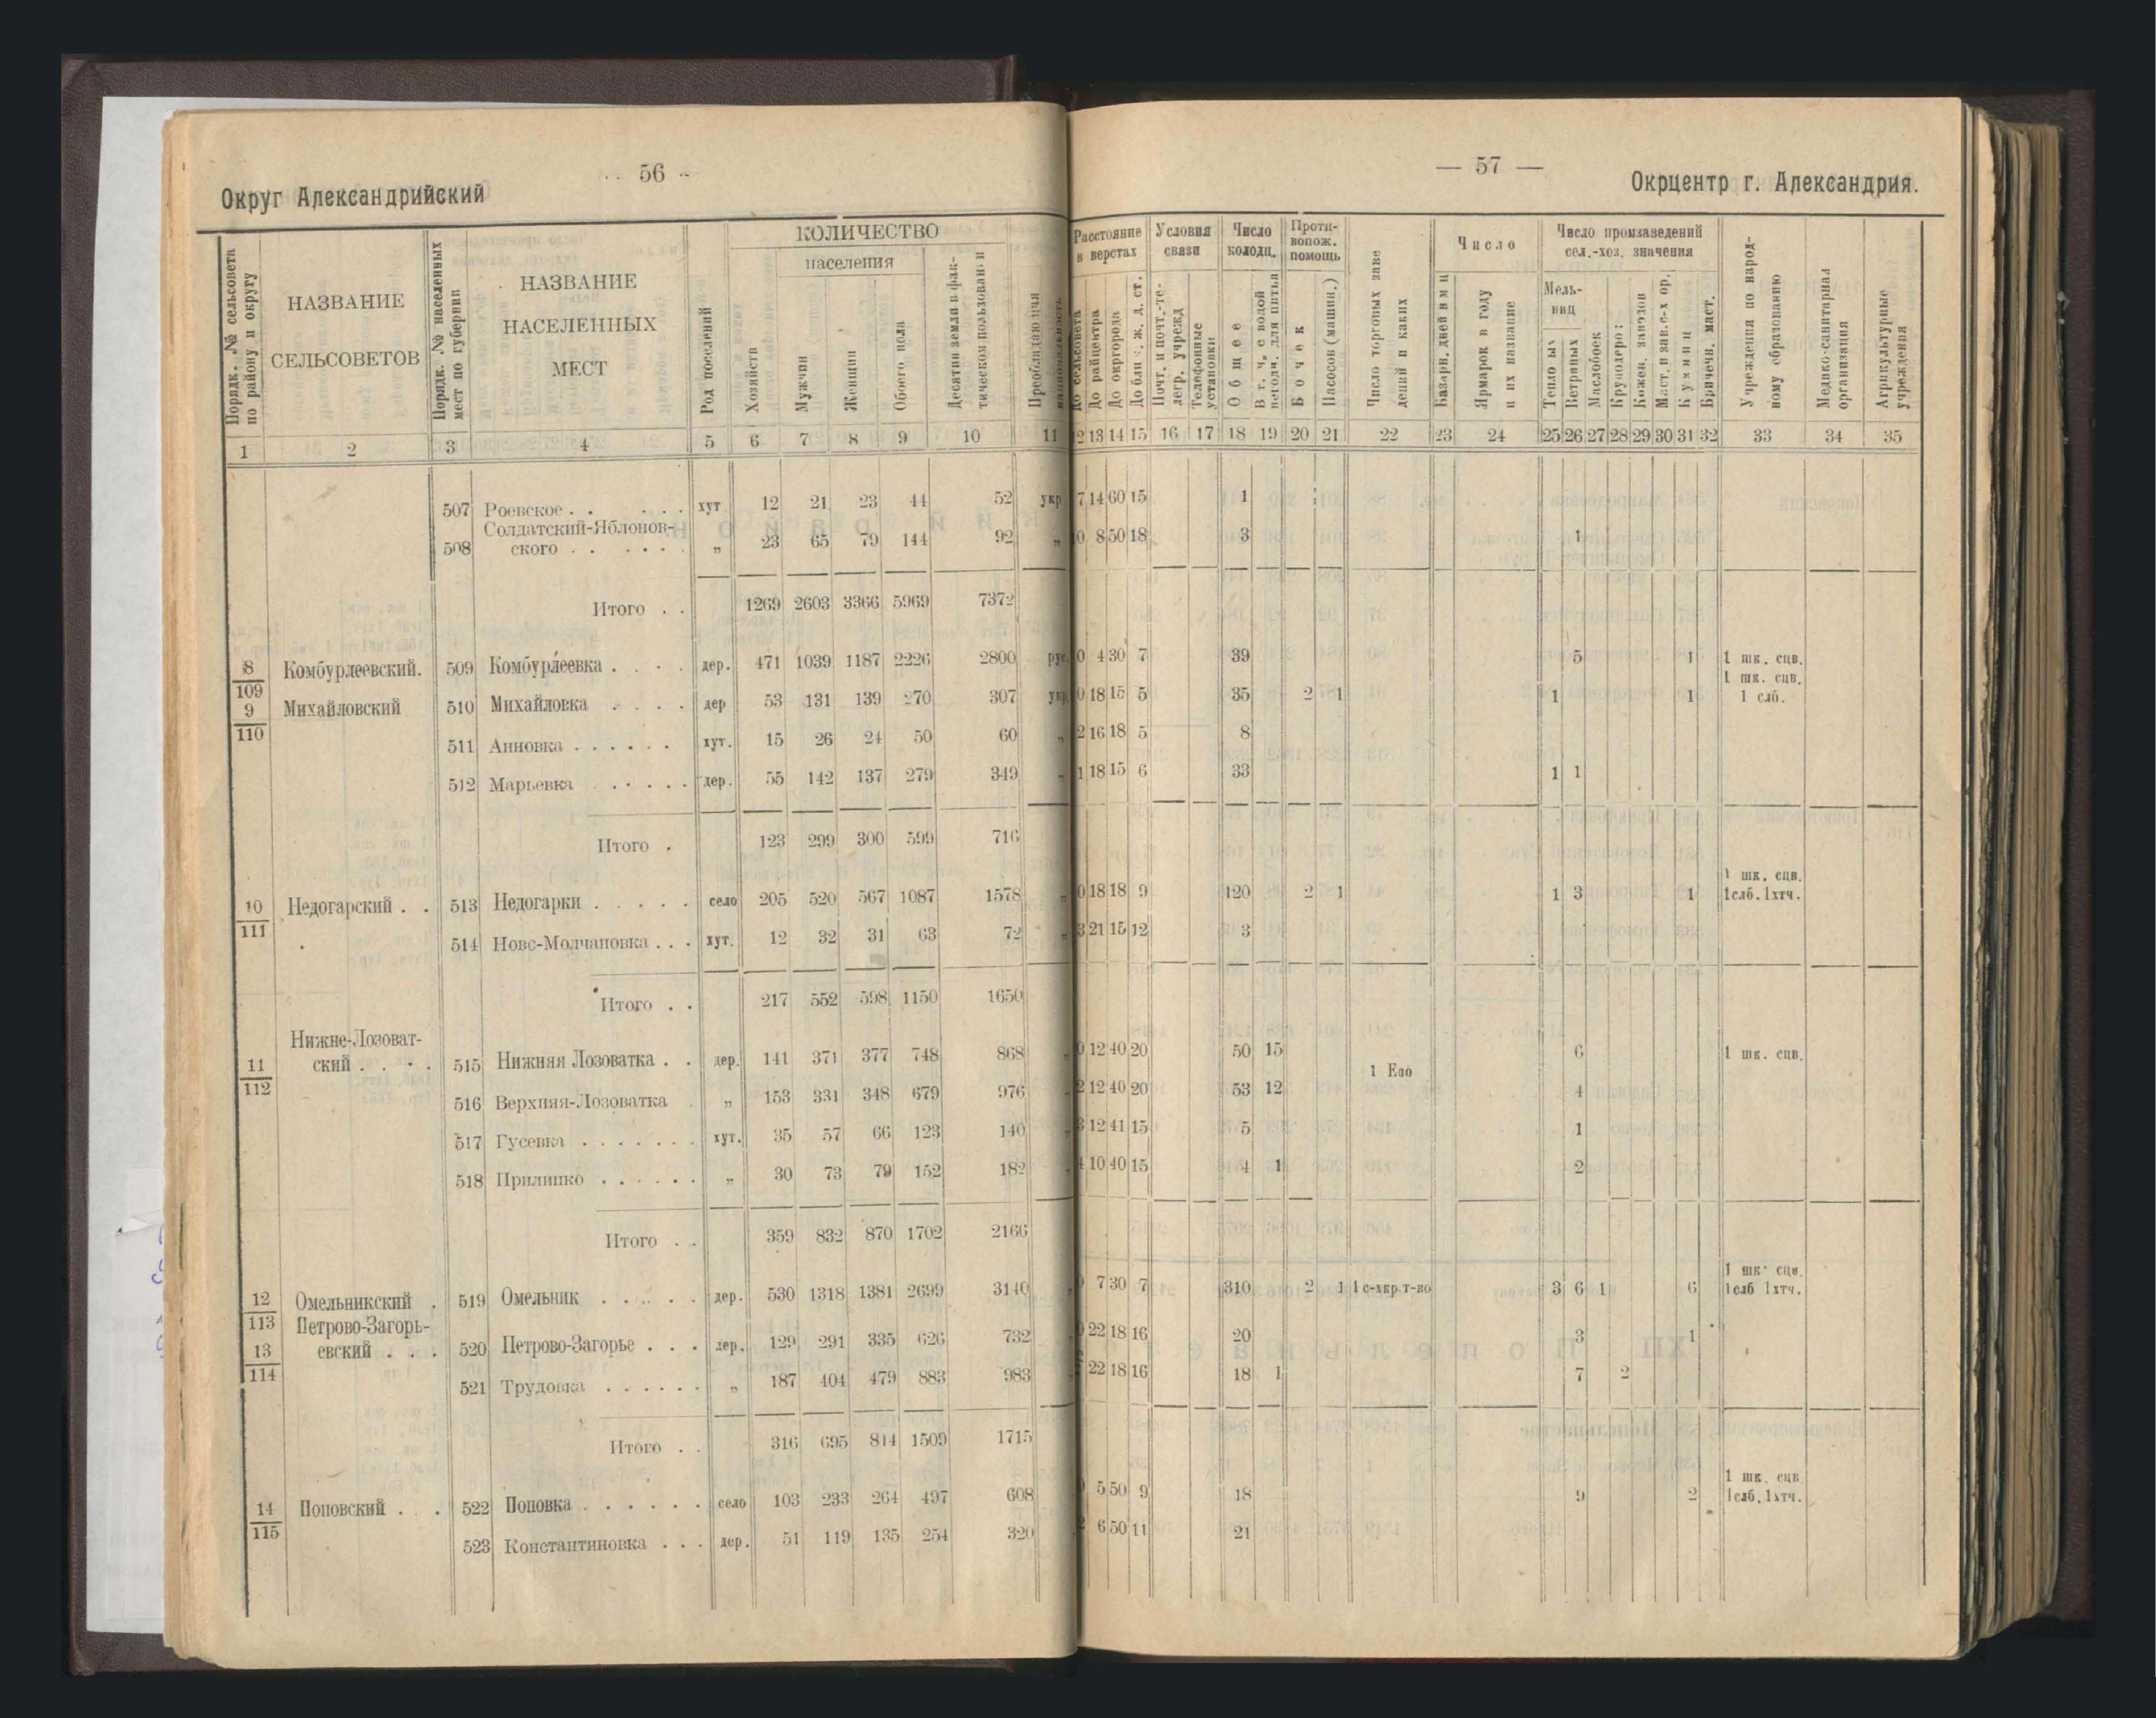 56
Округ Александрийский
Порядк. № сельсовета по району и округу
НАЗВАНИЕ СЕЛЬСОВЕТОВ
Порядк. № населенных мест по губернии
НАЗВАНИЕ НАСЕЛЕННЫХ МЕСТ
Род поселений
КОЛИЧЕСТВО
населения
Хозяйств
Мужчин
Женщин
Обоего пола
Десятин земли в фактическом пользовании
Преобладающая
1 2 3 4 5 6 7 8 9 10 11
507 Роевское . . . . . хут 12 21 23 44 52 укр.
Солдатский-Яблонов-
508 ского . . . . . . „ 23 65 79 144 92 „
Итого . . 1269 2603 3366 5969 7372
8/109 Комбурлеевский. 509 Комбурлеевка . . . . дер. 471 1039 1187 2226 2800 рус.
9/110 Михайловский 510 Михайловка . . . . дер 53 131 139 270 307 укр.
511 Анновка . . . . . . хут. 15 26 24 50 60 „
512 Марьевка . . . . . дер. 55 142 137 279 349 „
Итого . 123 299 300 599 716
10/111 Недогарский . . 513 Недогарки . . . . . село 205 520 567 1087 1578 „
514 Ново-Молчановка . . . хут. 12 32 31 63 72 „
Итого . . 217 552 598 1150 1650
Нижне-Лозоват-
11/112 ский . . . . 515 Нижняя Лозоватка . . дер. 141 371 377 748 868
516 Верхняя-Лозоватка . „ 153 331 348 679 976
517 Гусевка . . . . . . . хут. 35 57 66 123 140
518 Прилипко . . . . . . „ 30 73 79 152 182
Итого . . 359 832 870 1702 2166
12/113 Омельникский . 519 Омельник . . . . . дер. 530 1318 1381 2699 3140
Петрово-Загорь-
13/114 евский . . . 520 Петрово-Загорье . . . дер. 129 291 335 626 732
521 Трудовка . . . . . . „ 187 404 479 883 983
Итого . . 316 695 814 1509 1715
14/115 Поповский . . 522 Поповка . . . . . . село 103 233 264 497 608
523 Константиновка . . . дер. 51 119 135 254 320
— 57 —
Окрцентр г. Александрия.
Расстояние в верстах
Условия связи
Число колодц.
Проти-вопож. помощь
Число торговых заведений и каких
Число
Число промзаведений сел.-хоз. значения
До сельсовета
До райцентра
До окргорода
До бли ж. ж. д. ст.
Почт. и почт.-те-легр. учрежд
Телефонные установки
Общее
В т. ч. с водой негодн. для питья
Бочек
Насосов (машин.)
Ярмарок в году и их название
Мель-ниц
Ветряных
Маслобоек
Кожен. заводов
Кузниц
Учреждения по народ-ному образованию
Медико-санитарная организация
Агрикультурные учреждения
2 13 14 15 16 17 18 19 20 21 22 23 24 25 26 27 28 29 30 31 32 33 34 35
7 14 60 15 1
0 8 50 18 3 1
0 4 30 7 39 5 1 1 шк. сцв.
1 шк. сцв.
0 18 15 5 35 2 1 1 1 1 слб.
2 16 18 5 8
1 18 15 6 33 1 1
1 шк. сцв.
0 18 18 9 120 2 1 1 3 1 1слб. 1хтч.
3 21 15 12 3
0 12 40 20 50 15 6 1 шк. сцв.
1 Епо
2 12 40 20 53 12 4
3 12 41 15 5 1
4 10 40 15 4 1 2
1 шк. сцв.
7 30 7 310 2 1 1 с-хкр.т-во 3 6 1 6 1слб 1хтч.
22 18 16 20 3 1
22 18 16 18 1 7 2
1 шк. сцв
5 50 9 18 9 2 1слб. 1хтч.
6 50 11 21